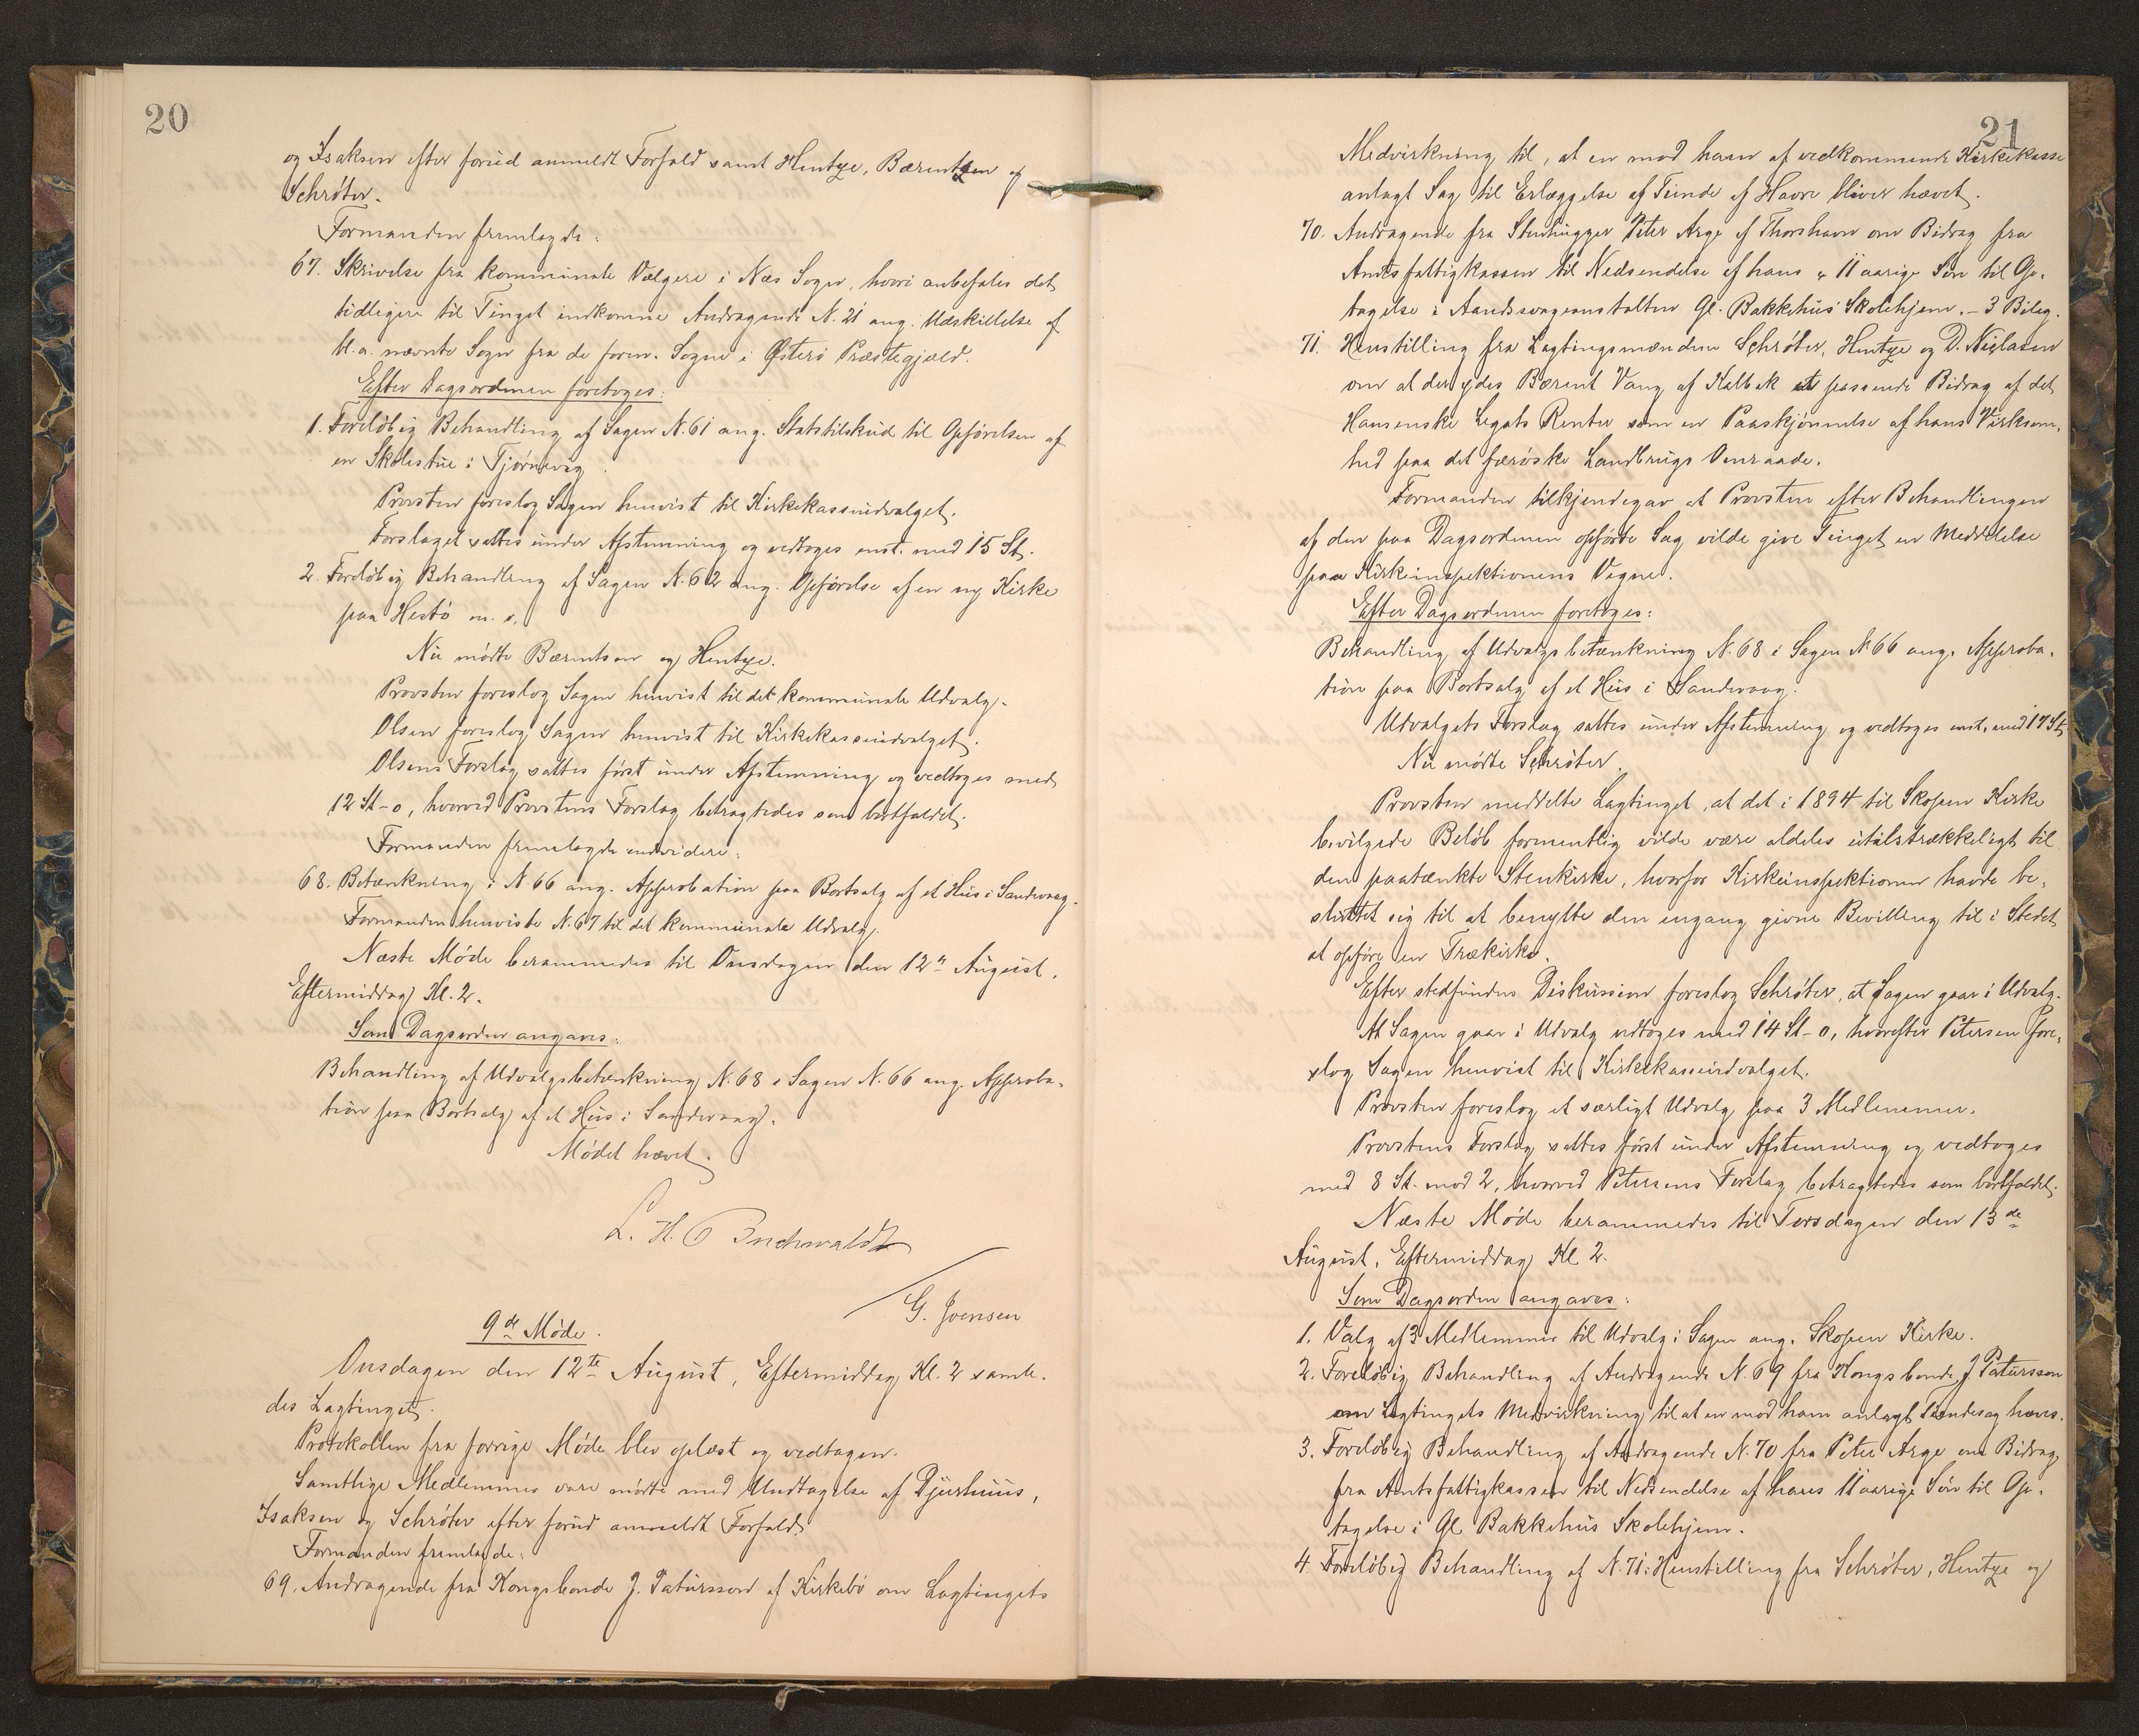 20
og Isaksen efter forud anmeldt Forfald samt Hentze, Bærentzen og
Schrøter.
Formanden fremlagde:
67. Skrivelse fra kommunale Vælgere i Næs Sogn, hvori anbefales det
tidligere til Tinget indkomne Andragende N. 21 ang. Udskillelse af
bl. a. nævnte Sogn fra de forn. Sogne i Østerø Præstegjæld.
Efter Dagsordenen foretoges:
1. Foreløbig Behandling af Sagen N. 61 ang. Statstilskud til Opførelsen af
en Skolestue i Tjørnevig.
Provsten foreslog Sagen henvist til Kirkekasseudvalget.
Forslaget sattes under Afstemning og vedtoges enst. med 15 St.
2. Foreløbig Behandling af Sagen N. 62 ang. Opførelse af en ny Kirke
paa Hestø m. v.
Nu mødte Bærentsen og Hentze.
Provsten foreslog Sagen henvist til det kommunale Udvalg.
Olsen foreslog Sagen henvist til Kirkekasseudvalget.
Olsens Forslag sattes først under Afstemning og vedtoges med
12 St - 0, hvorved Provstens Forslag betragtedes som bortfaldet.
Formanden fremlagde endvidere:
68. Betænkning i N 66 ang. Approbation paa Bortsalg af et Hus i Sandevaag.
Formanden henviste N. 67 til det kommunale Udvalg.
Næste Møde berammedes til Onsdagen den 12te August,
Eftermiddag Kl. 2.
Som Dagsorden angaves:
Behandling af Udvalgsbetænkning N. 68 i Sagen N. 66 ang. Approba-
tion paa Bortsalg af et Hus i Sandevaag.
Mødet hævet.
L. H. Buchwaldt
G. Joensen
9de Møde.
Onsdagen den 12te August, Eftermiddag Kl. 2 samle-
des Lagtinget.
Protokollen fra forrige Møde blev oplæst og vedtagen.
Samtlige Medlemmer vare mødte med Undtagelse af Djurhuus,
Isaksen og Schrøter efter forud anmeldt Forfald.
Formanden fremlagde:
69. Andragende fra Kongsbonde J. Patursson af Kirkebø om Lagtingets
21
Medvirkning til, at en mod ham af vedkommende Kirkekasse
anlagt Sag til Erlæggelse af Tiende af Havre bliver hævet.
70. Andragende fra Stenhugger Peter Arge af Thorshavn om Bidrag fra
Amtsfattigkassen til Nedsendelse af hans 11 aarige Søn til Op-
tagelse i Aandssvageanstalten Gl. Bakkehus Skolehjem. - 3 Bilag.
71. Henstilling fra Lagtingsmændene Schrøter, Hentze og D. Niclasen
om at der ydes Bærent Vang af Kalbak et passende Bidrag af det
Hansenske Legats Renter som en Paaskjønnelse af hans Virksom-
hed paa det færøske Landbrugs Omraade.
Formanden tilkjendegav at Provsten efter Behandlingen
af den paa Dagsordenen opførte Sag vilde give Tinget en Meddelelse
paa Kirkeinspektionens Vegne.
Efter Dagsordenen foretoges:
Behandling af Udvalgsbetænkning N. 68 i Sagen N 66 ang. Approba-
tion paa Bortsalg af et Hus i Sandevaag.
Udvalgets Forslag sattes under Afstemning og vedtoges enst. med 17 St.
Nu mødte Schrøter.
Provsten meddelte Lagtinget, at det i 1894 til Skopen Kirke
bevilgede Beløb formentlig vilde være aldeles utilstrækkeligt til
den paatænkte Stenkirke, hvorfor Kirkeinspektionen havde be-
sluttet sig til at benytte den engang givne Bevilling til i Stedet
at opføre en Trækirke.
Efter stedfunden Diskussion foreslog Schrøter, at Sagen gaar i Udvalg.
At Sagen gaar i Udvalg vedtoges med 14 St - 0, hvorefter Petersen fore-
slog Sagen henvist til Kirkekasseudvalget.
Provsten foreslog et særligt Udvalg paa 3 Medlemmer.
Provstens Forslag sattes først under Afstemning og vedtoges
med 8 St. mod 2, hvorved Petersens Forslag betragtedes som bortfaldet.
Næste Møde berammedes til Torsdagen den 13de
August, Eftermiddag Kl 2.
Som Dagsorden angaves:
1. Valg af 3 Medlemmer til Udvalg i Sagen ang. Skopen Kirke.
2. Foreløbig Behandling af Andragende N. 69 fra Kongsbonde J. Patursson
om Lagtingets Medvirkning til at en mod ham anlagt Tiendesag hæves.
3. Foreløbig Behandling af Andragende N. 70 fra Peter Arge om Bidrag
fra Amtsfattigkassen til Nedsendelse af hans 11 aarige Søn til Op-
tagelse i Gl Bakkehus Skolehjem.
4. Foreløbig Behandling af N. 71: Henstilling fra Schrøter, Hentze og